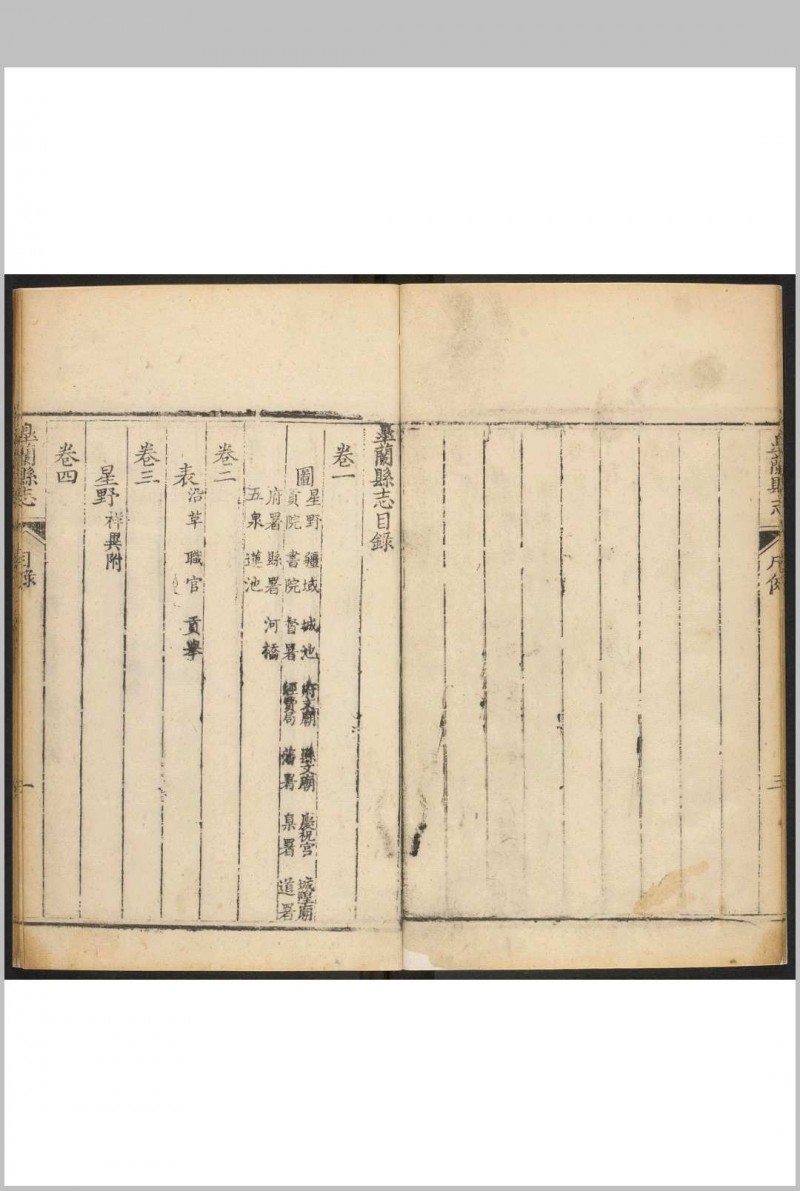 臯蘭縣志
三
臯蘭縣志目錄
卷一
圖 星野 疆域 城池 府文廟 縣文廟 慶祝宮 城隍廟
貢院 書院 督署 經費局 藩署 臬署 道署
府署 縣署 河橋
五泉 蓮池
卷二
表 沿革 職官 貢舉
卷三
星野 祥異附
卷四
臯蘭縣志
目錄
一